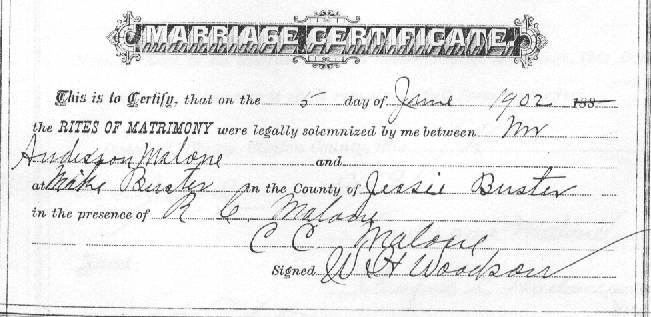 MARRIAGE CERTIFICATE.
This is to Certify, that on the 5 day of June 1902 188
the RITES OF MATRIMONY were legally solemnized by me between Mr
Anderson Malone and
at Mike Buster in the County of Jessie Buster
in the presence of R C. Malone
C C Malone
Signed W H Woodson